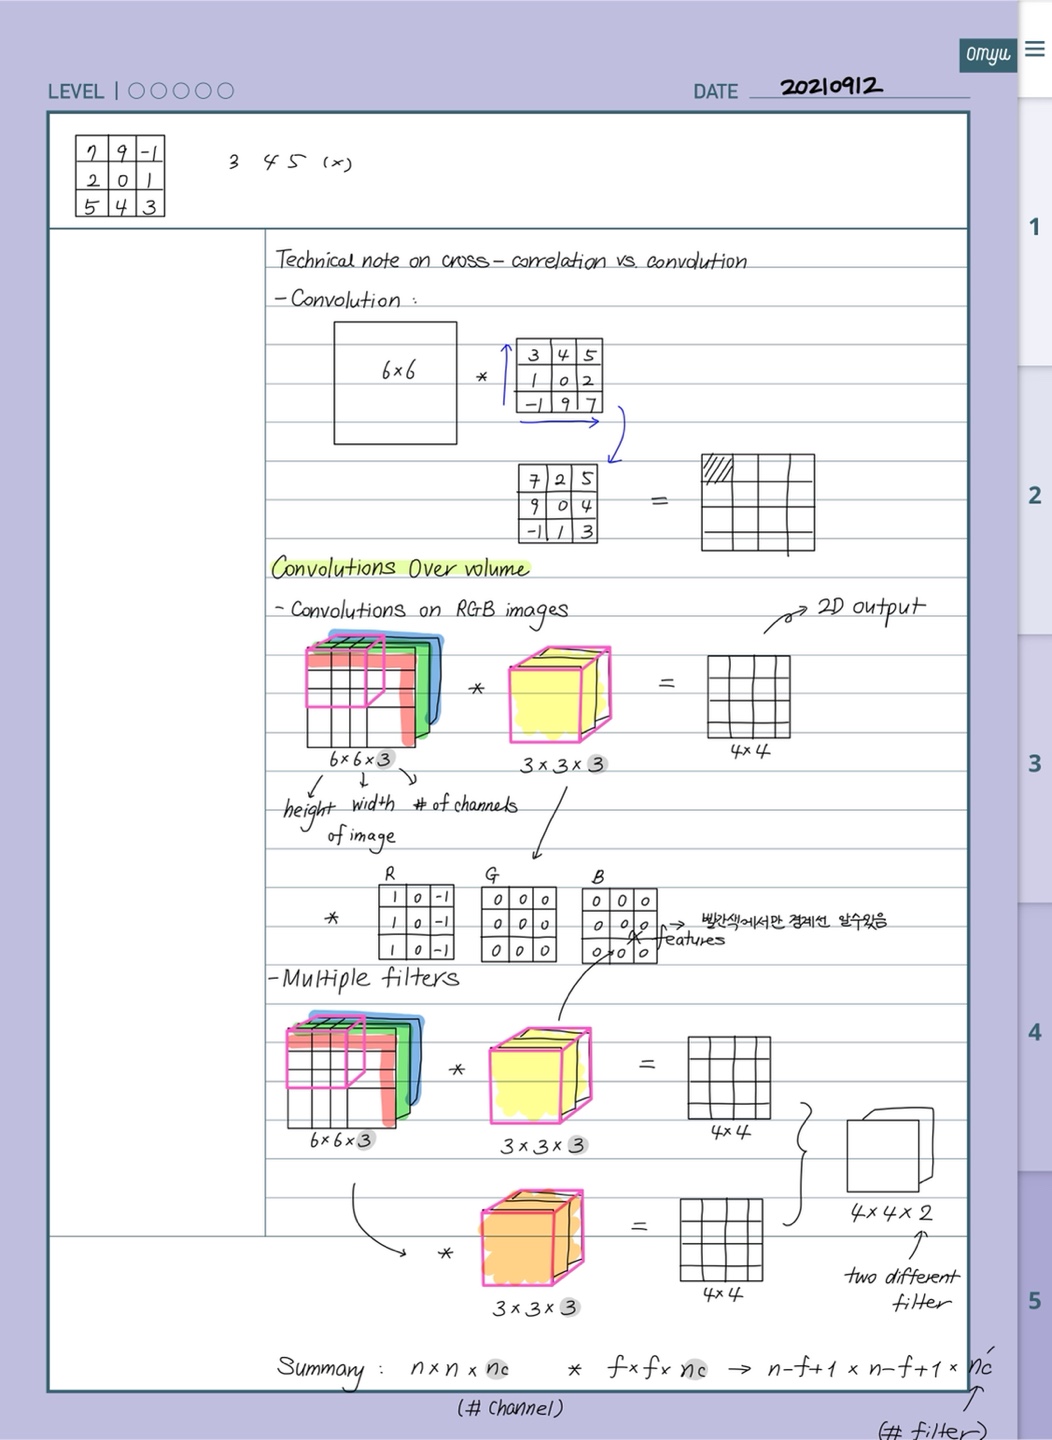 omyu
LEVEL
DATE 20210912
7 9 -1
2 0 1
5 4 3
3 4 5 (x)
Technical note on cross-correlation vs. convolution
- Convolution :
6×6
*
3 4 5
1 0 2
-1 9 7
7 2 5
9 0 4
-1 1 3
=
Convolutions Over volume
- Convolutions on RGB images
→ 2D output
* =
6×6×3
3×3×3
4×4
height width # of channels
of image
R G B
*
1 0 -1
1 0 -1
1 0 -1
0 0 0
0 0 0
0 0 0
0 0 0
0 0 0
0 0 0
→ 빨간색에서만 경계선 알수있음
features
- Multiple filters
* =
6×6×3
3×3×3
4×4
4×4×2
* =
3×3×3
4×4
two different
filter
Summary : n×n×nc * f×f×nc → n-f+1 × n-f+1 × nc'
(# channel)
(# filter)
1
2
3
4
5